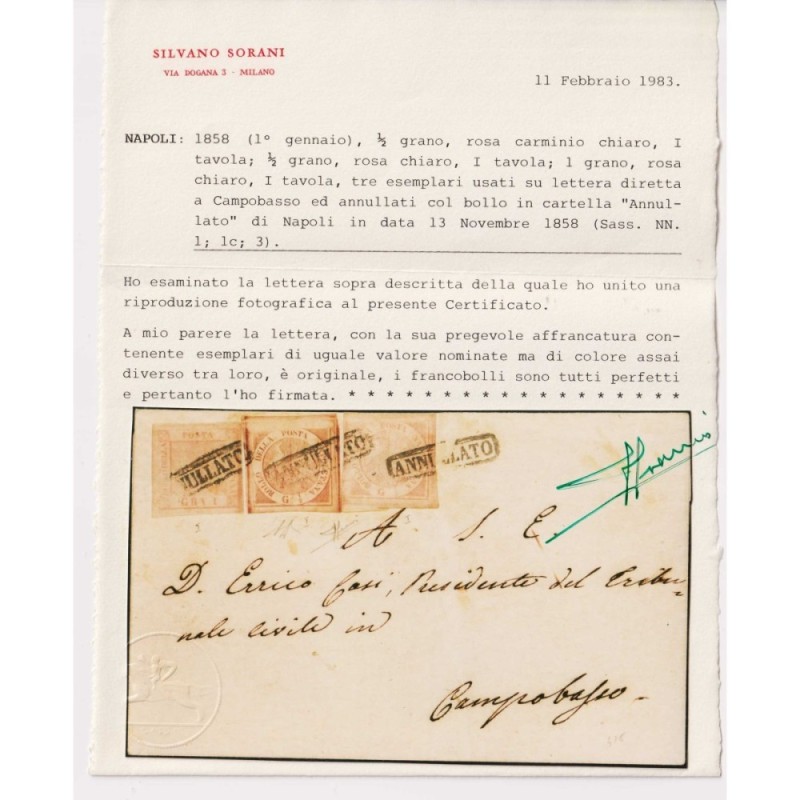 SILVANO SORANI
VIA DOGANA 3 - MILANO
11 Febbraio 1983.
NAPOLI: 1858 (1° gennaio), ½ grano, rosa carminio chiaro, I
tavola; ½ grano, rosa chiaro, I tavola; 1 grano, rosa
chiaro, I tavola, tre esemplari usati su lettera diretta
a Campobasso ed annullati col bollo in cartella "Annul-
lato" di Napoli in data 13 Novembre 1858 (Sass. NN.
1; 1c; 3).
Ho esaminato la lettera sopra descritta della quale ho unito una
riproduzione fotografica al presente Certificato.
A mio parere la lettera, con la sua pregevole affrancatura con-
tenente esemplari di uguale valore nominate ma di colore assai
diverso tra loro, è originale, i francobolli sono tutti perfetti
e pertanto l'ho firmata. * * * * * * * * * * * * * * * * * *
POSTA
NULLATO
G R A 1
DELLA POSTA
ANNULLATO
G. 1
ANNULLATO
A S. E.
D. Errico Casi, Presidente del Tribu-
nale civile in
Campobasso -